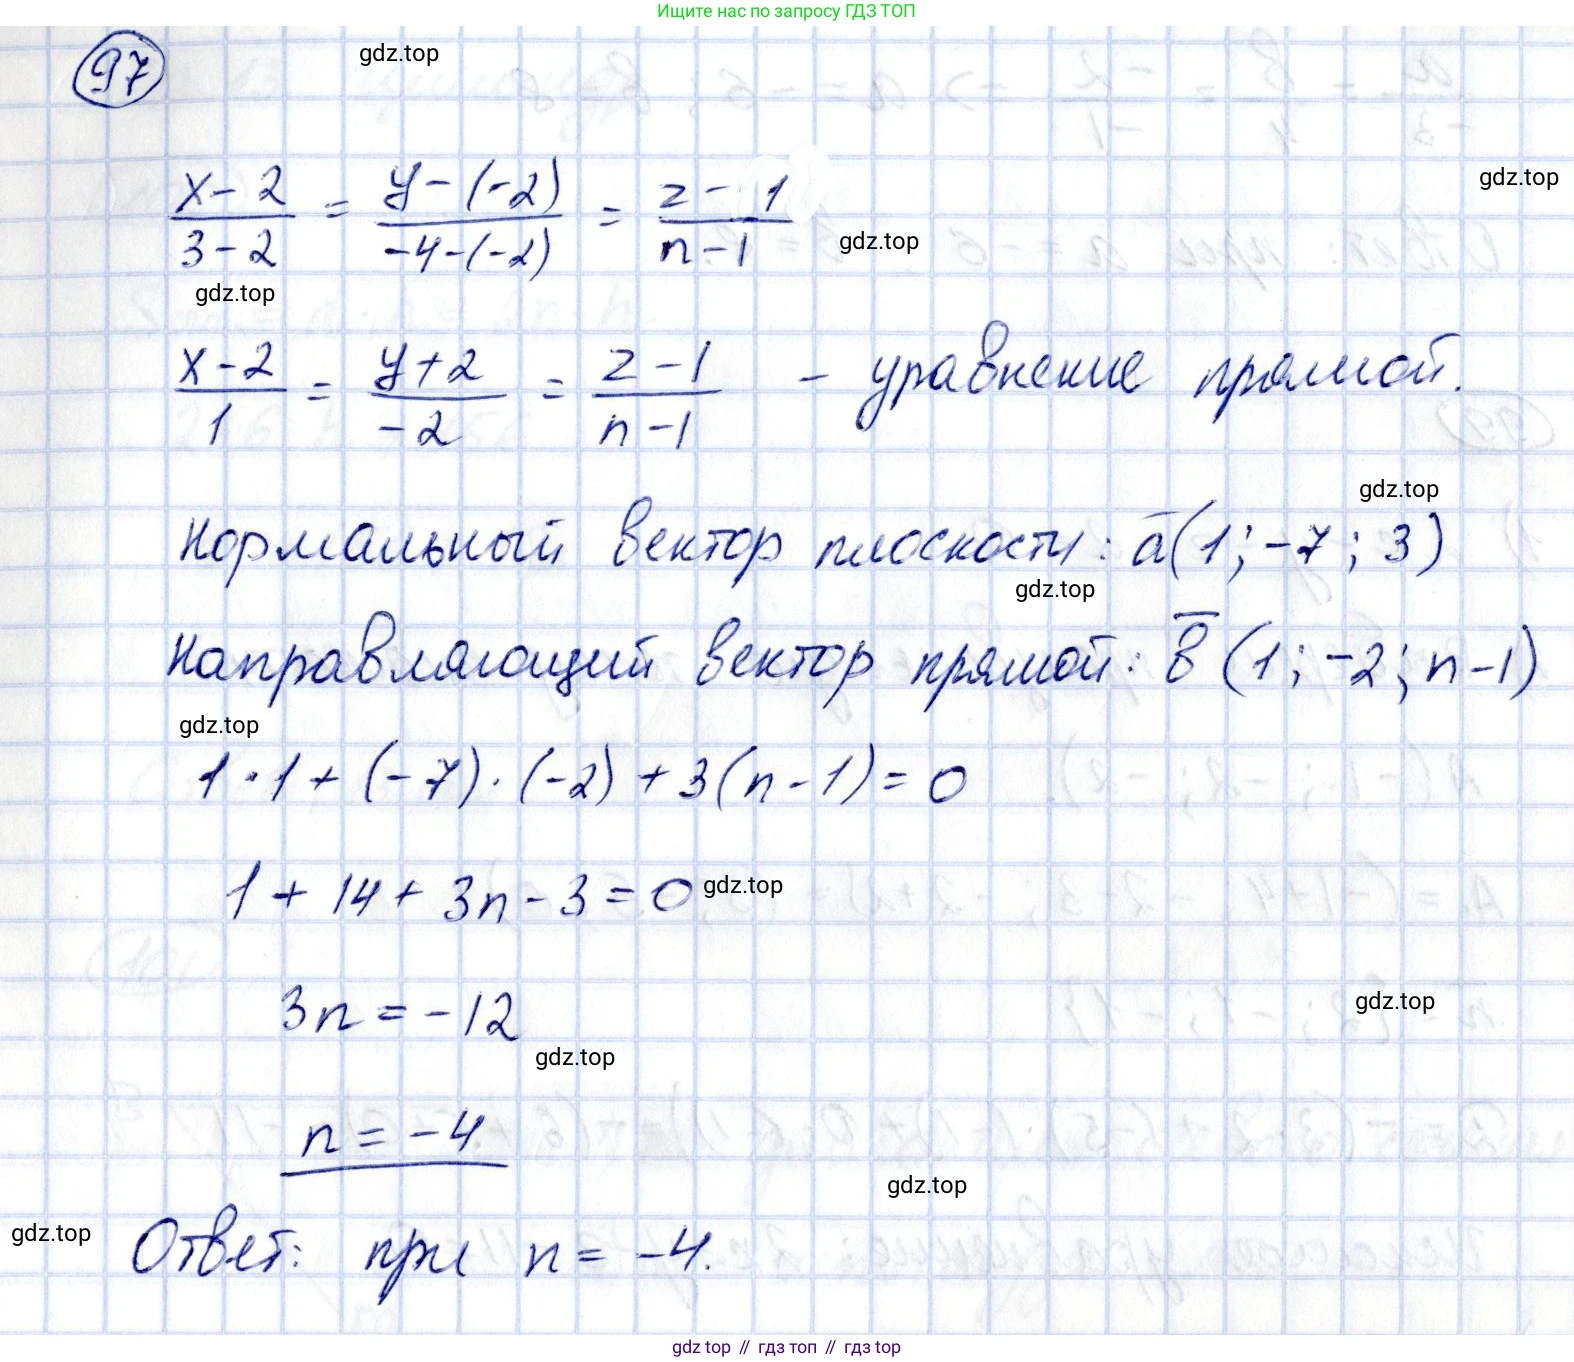 Ищите нас по запросу ГДЗ ТОП
97
gdz.top
gdz.top
(x-2)/(3-2) = (y-(-2))/(-4-(-2)) = (z-1)/(n-1)
gdz.top
gdz.top
(x-2)/1 = (y+2)/(-2) = (z-1)/(n-1) - уравнение прямой.
gdz.top
Нормальный вектор плоскости: a̅(1; -7; 3)
gdz.top
Направляющий вектор прямой: в̅(1; -2; n-1)
gdz.top
1·1+(-7)·(-2)+3(n-1)=0
1+14+3n-3=0
gdz.top
3n=-12
gdz.top
gdz.top
n=-4
gdz.top
gdz.top
Ответ: при n=-4.
gdz.top // гдз топ // gdz.top